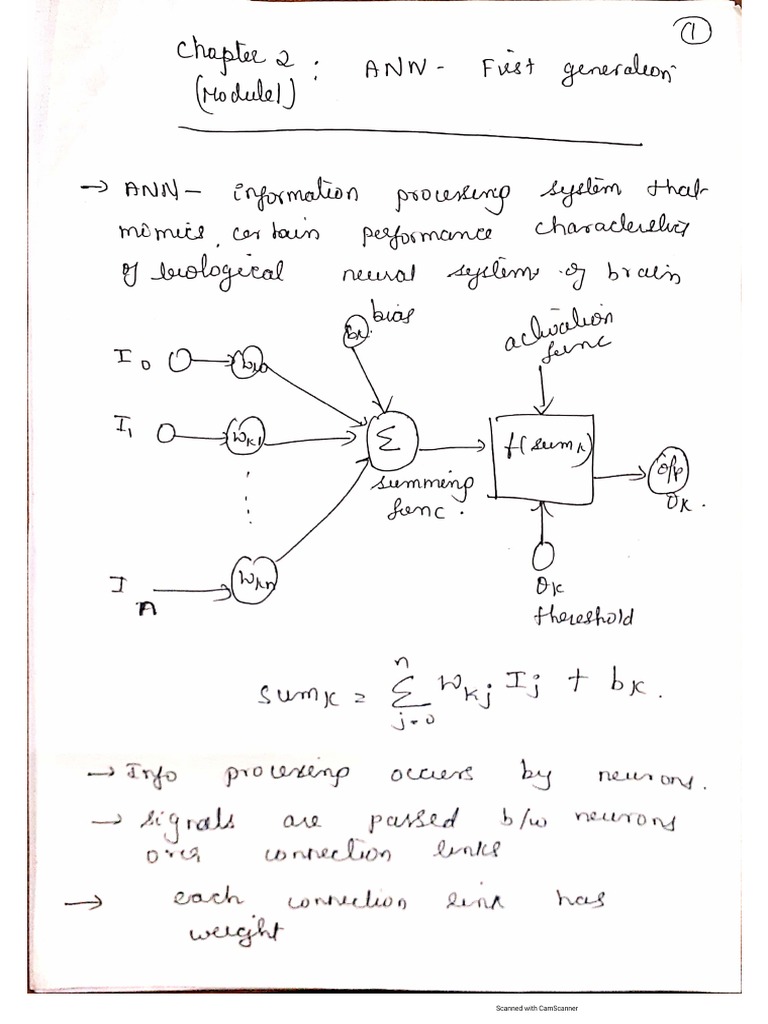 1
Chapter 2 : ANN - First generation
(Module 1)
→ ANN - information processing system that
mimics certain performance characteristics
of biological neural system of brain
bias
bk
activation
func
I0
wk0
I1
wk1
Σ
f(sumk)
o/p
Ok.
summing
func.
In
wkn
θk
thereshold
sumk = Σ wkj Ij + bk.
n
j=0
→ Info processing occurs by neurons.
→ signals are passed b/w neurons
over connection links
→ each connection link has
weight
Scanned with CamScanner